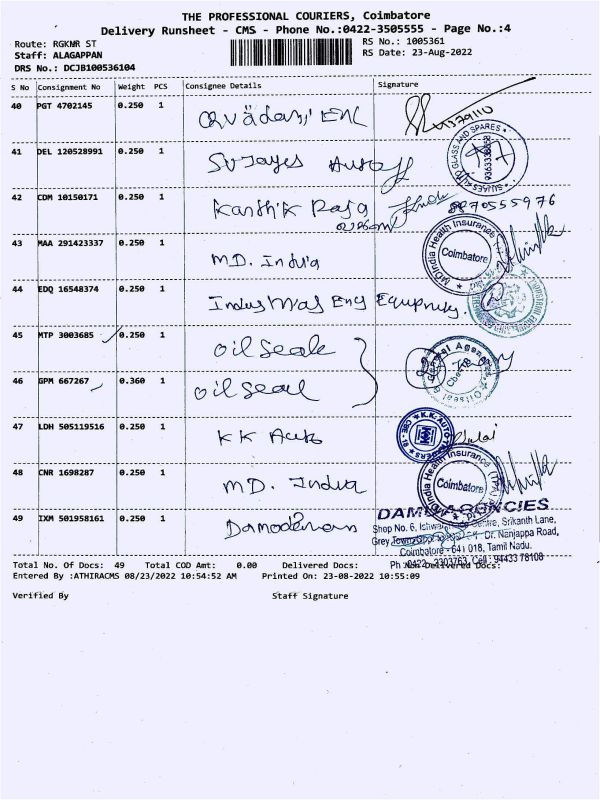 THE PROFESSIONAL COURIERS, Coimbatore
Delivery Runsheet - CMS - Phone No.:0422-3505555 - Page No.:4
Route: RGKNR ST
RS No.: 1005361
Staff: ALAGAPPAN
RS Date: 23-Aug-2022
DRS No.: DCJB100536104
S No Consignment No Weight PCS Consignee Details Signature
40 PGT 4702145 0.250 1
41 DEL 120528991 0.250 1
GLASS AND SPARES
42 CDM 10150171 0.250 1 Karthik Raja
43 MAA 291423337 0.250 1 MD. India
MDIndia Health Insurance
Coimbatore
44 EDQ 16548374 0.250 1
45 MTP 3003685 0.250 1 Oil Seal
46 GPM 667267 0.360 1 Oil Seal
47 LDH 505119516 0.250 1 KK Auto
48 CNR 1698287 0.250 1 MD. India
MDIndia Health Insurance (TPA)
Coimbatore
49 IXM 501958161 0.250 1
Shop No. 6, Centre, Srikanth Lane,
Dr. Nanjappa Road,
Coimbatore - 641 018, Tamil Nadu.
Total No. Of Docs: 49 Total COD Amt: 0.00 Delivered Docs: Non Delivered Docs:
Ph : 0422 - 3303763, Cell : 94433 78108
Entered By :ATHIRACMS 08/23/2022 10:54:52 AM Printed On: 23-08-2022 10:55:09
Verified By Staff Signature